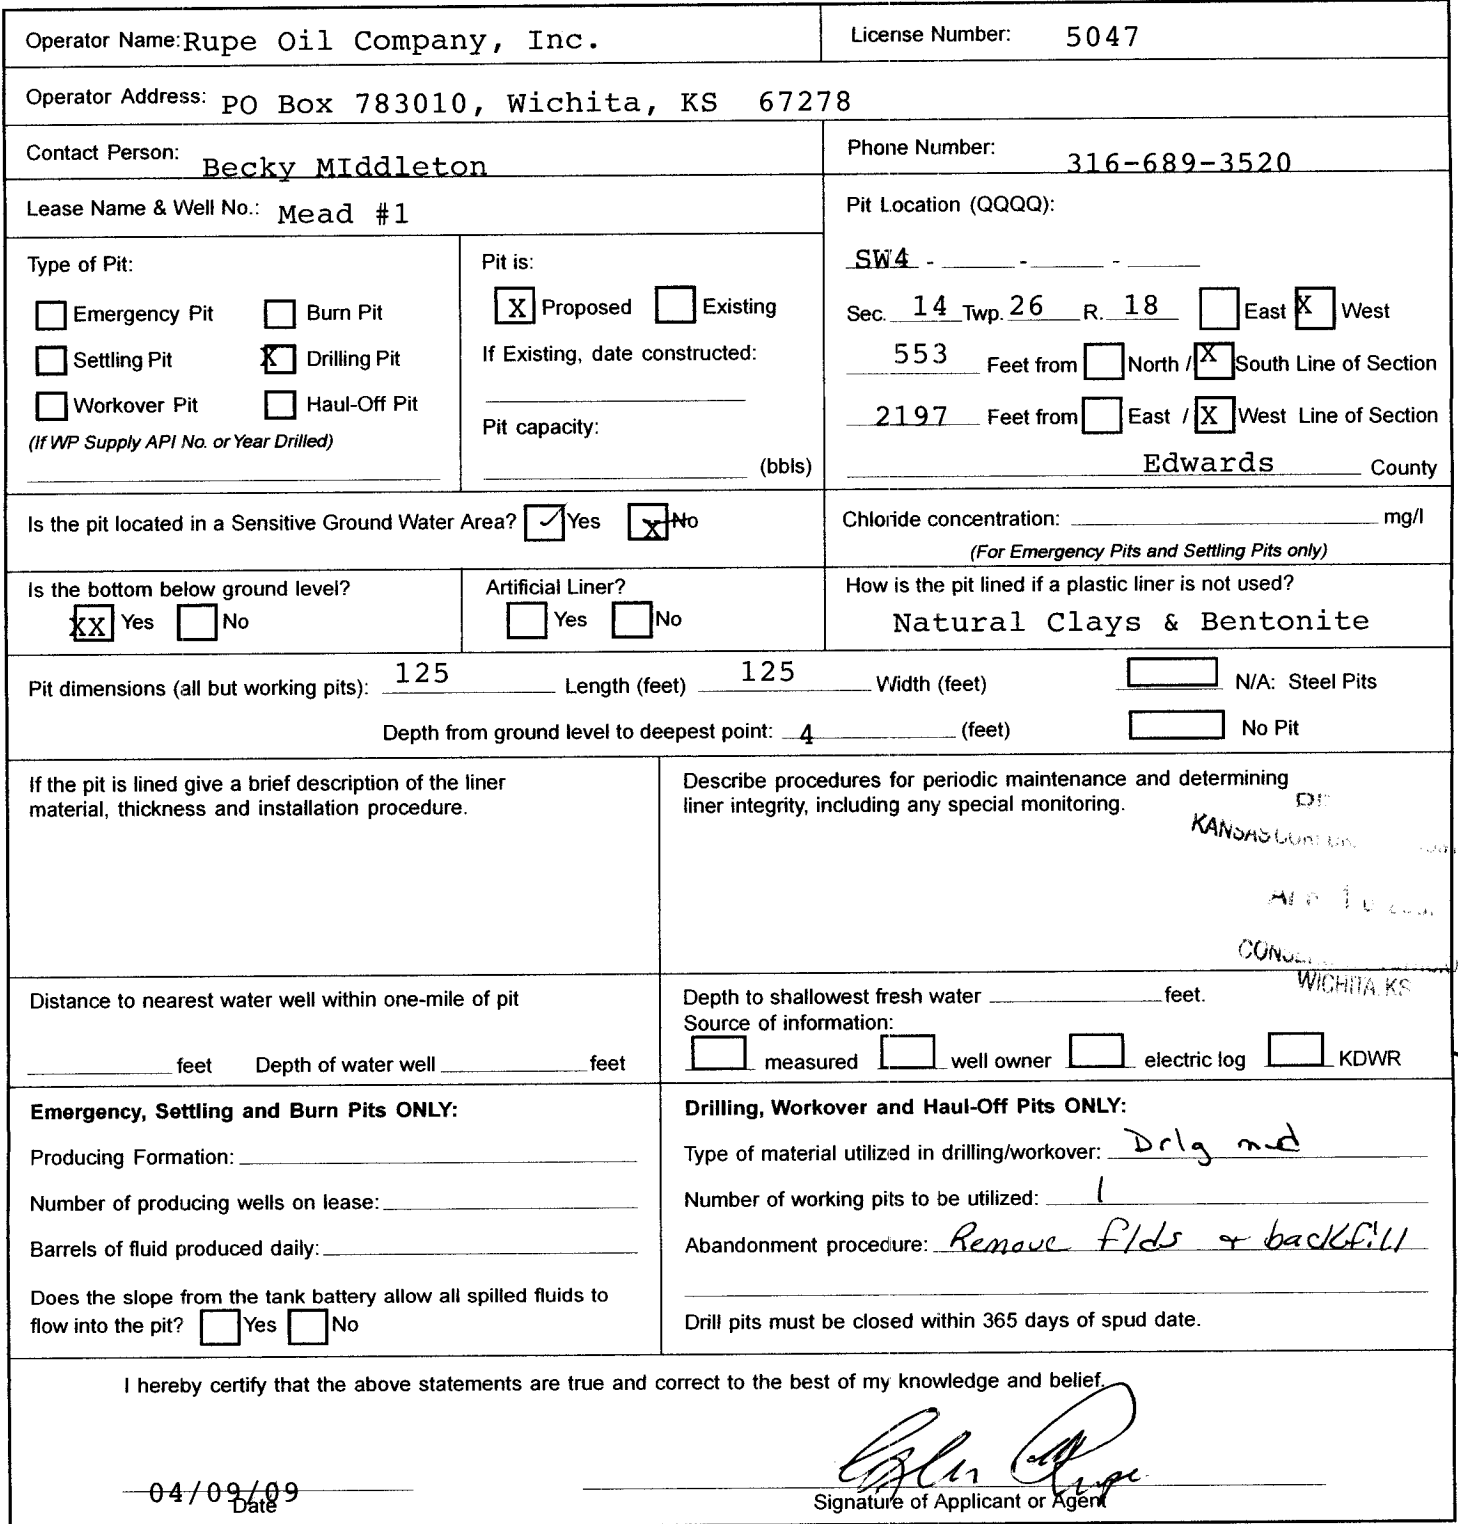 Operator Name: Rupe Oil Company, Inc.
License Number: 5047
Operator Address: PO Box 783010, Wichita, KS 67278
Contact Person: Becky MIddleton
Phone Number: 316-689-3520
Lease Name & Well No.: Mead #1
Pit Location (QQQQ):
SW4 - - -
Type of Pit:
Emergency Pit Burn Pit
Settling Pit X Drilling Pit
Workover Pit Haul-Off Pit
(If WP Supply API No. or Year Drilled)
Pit is:
X Proposed Existing
If Existing, date constructed:
Pit capacity:
(bbls)
Sec. 14 Twp. 26 R. 18 East X West
553 Feet from North / X South Line of Section
2197 Feet from East / X West Line of Section
Edwards County
Is the pit located in a Sensitive Ground Water Area? ✓ Yes X No
Chloride concentration: mg/l
(For Emergency Pits and Settling Pits only)
Is the bottom below ground level?
XX Yes No
Artificial Liner?
Yes No
How is the pit lined if a plastic liner is not used?
Natural Clays & Bentonite
Pit dimensions (all but working pits): 125 Length (feet) 125 Width (feet) N/A: Steel Pits
Depth from ground level to deepest point: 4 (feet) No Pit
If the pit is lined give a brief description of the liner
material, thickness and installation procedure.
Describe procedures for periodic maintenance and determining
liner integrity, including any special monitoring.
KANSAS
WICHITA, KS
Distance to nearest water well within one-mile of pit
feet Depth of water well feet
Depth to shallowest fresh water feet.
Source of information:
measured well owner electric log KDWR
Emergency, Settling and Burn Pits ONLY:
Producing Formation:
Number of producing wells on lease:
Barrels of fluid produced daily:
Does the slope from the tank battery allow all spilled fluids to
flow into the pit? Yes No
Drilling, Workover and Haul-Off Pits ONLY:
Type of material utilized in drilling/workover: Drlg mud
Number of working pits to be utilized: 1
Abandonment procedure: Remove flds + backfill
Drill pits must be closed within 365 days of spud date.
I hereby certify that the above statements are true and correct to the best of my knowledge and belief.
04/09/09
Date
Signature of Applicant or Agent